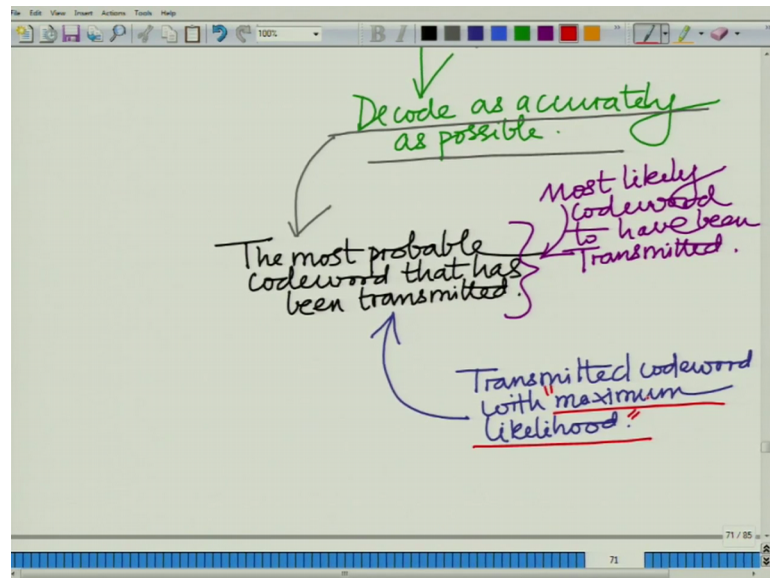 File Edit View Insert Actions Tools Help
100%
B I
Decode as accurately
as possible.
Most likely
codeword
to have been
Transmitted.
The most probable
codeword that has
been transmitted.
Transmitted codeword
with "maximum
likelihood."
71 / 85
71